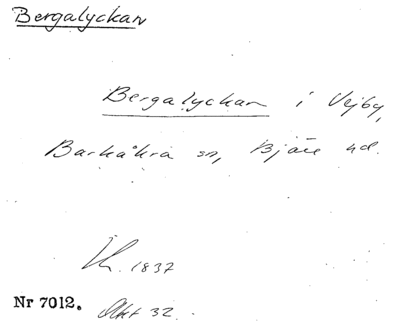 Bergalyckan
Bergalyckan i Vejby,
Barkåkra sn, Bjäre hd.
1837
Nr 7012. Akt 32.